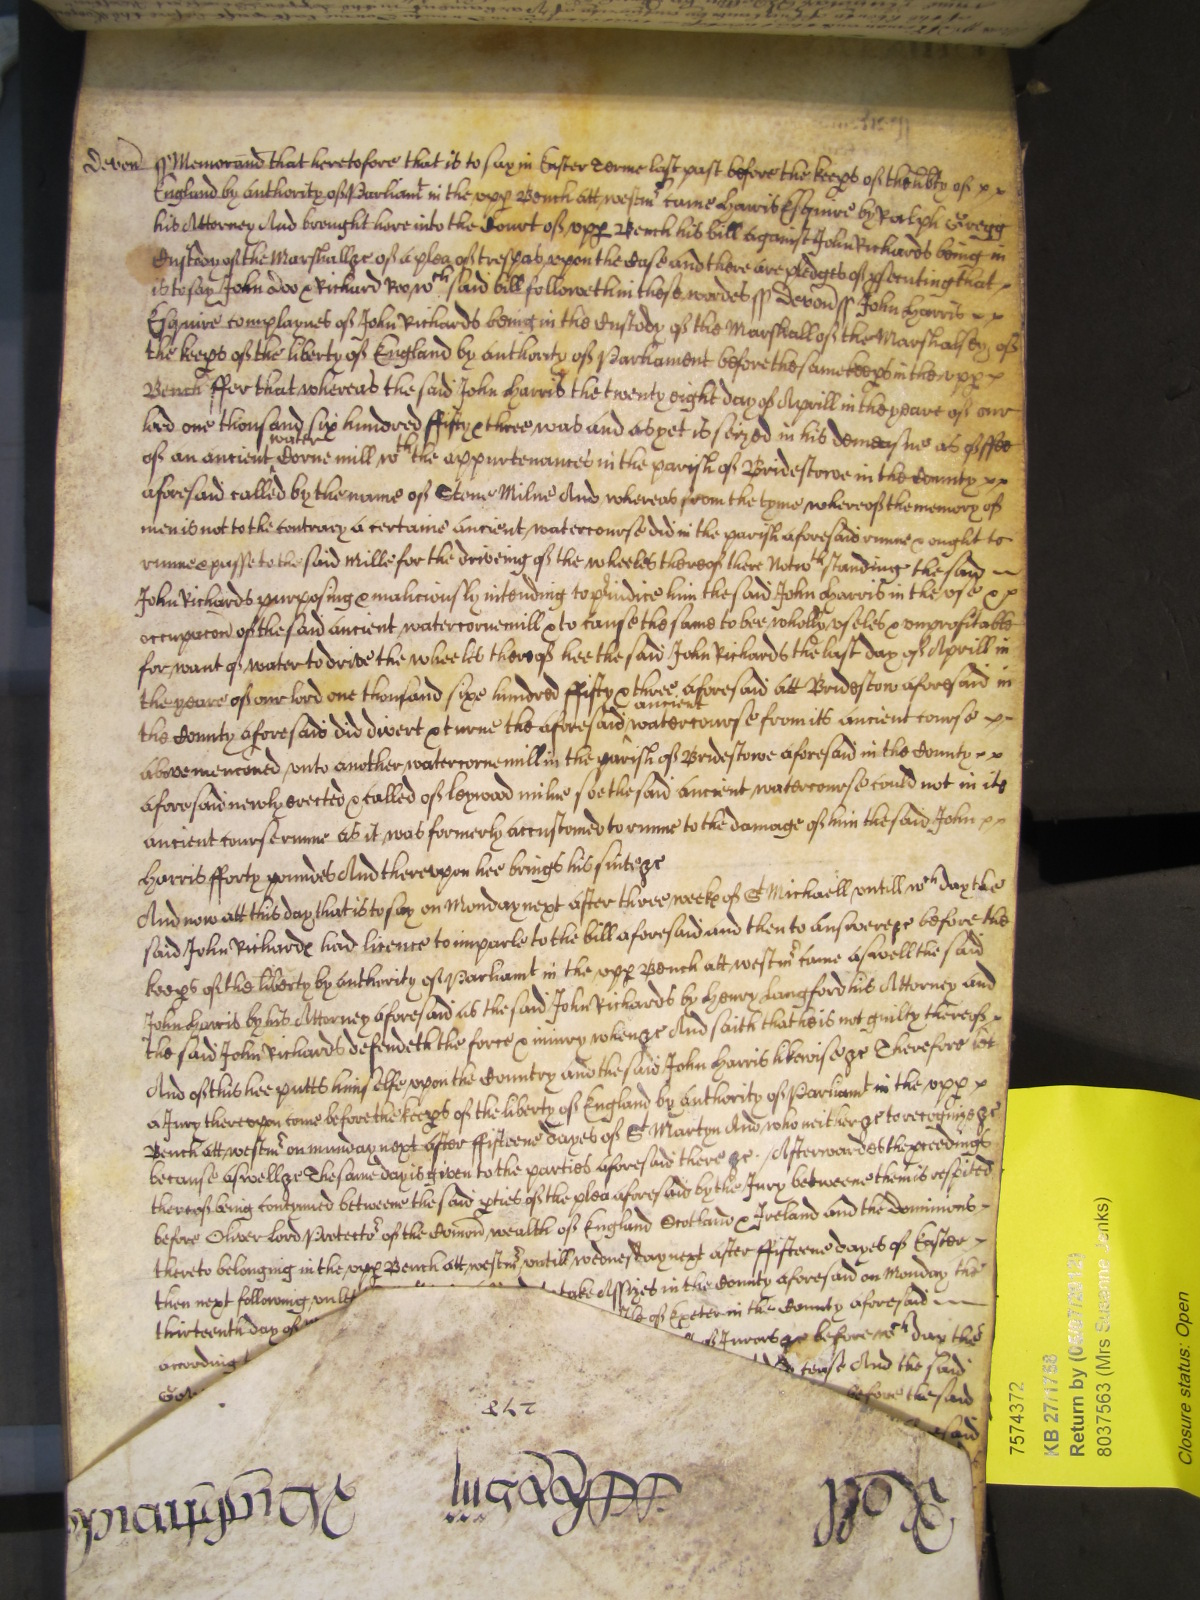 Devon ss Memorand that heretofore that is to say in Easter Terme last past before the keeps of the libty of
England by authority of Parliamt in the upp Bench att westmr came Harris Esquire by Ralph Gregg
his Attorney And brought here into the Court of upp Bench his bill against John Richards being in
Custody of the Marshall &c of a plea of trespas upon the Case and there are pledges of psecuting that
is to say John Doo & Richard Roo wch said bill followeth in these wordes ss Devon ss John Harris
Esquire complaynes of John Richards being in the Custody of the Marshall of the Marshalsey of
the keeps of the liberty of England by authority of Parliament before the same keeps in the upp
Bench ffor that whereas the said John Harris the twenty eight day of Aprill in the yeare of our
lord one thousand six hundred ffifty & three was and as yet is seized in his demeasne as of ffee
of an ancient water Corne mill wth the appurtenances in the parish of Bridestowe in the County
aforesaid called by the name of Stone Milne And whereas from the tyme whereof the memory of
men is not to the contrary a certaine ancient watercourse did in the parish aforesaid runne & ought to
runne & passe to the said Mille for the driveing of the wheeles thereof there Notwthstanding the said
John Richards purposing & maliciously intending to pjudice him the said John Harris in the use &
occupacon of the said ancient watercornemill & to cause the same to bee wholly useles & unprofitable
for want of water to drive the wheeles thereof hee the said John Richards the last day of Aprill in
the yeare of our lord one thousand sixe hundred ffifty & three aforesaid att Bridestow aforesaid in
the County aforesaid did divert & turne the aforesaid ancient watercourse from its ancient course
abovemenconed unto another watercornemill in the parish of Bridestowe aforesaid in the County
aforesaid newly erected & called of Leywood milne soe the said ancient watercourse could not in its
ancient course runne as it was formerly accustomed to runne to the damage of him the said John
Harris fforty poundes And thereupon hee brings his suite &c
And now att this day that is to say on Monday next after three weekes of St Michaell untill wch day the
said John Richards had licence to imparle to the bill aforesaid and then to answere &c before the
keeps of the liberty by authority of Parliamt in the upp Bench att westmr came aswell the said
John Harris by his Attorney aforesaid as the said John Richards by Henry Langford his Attorney and
the said John Richards defendeth the force & iniury when &c And saith that he is not guilty thereof
And of this hee putts himselfe upon the Country and the said John Harris likewise &c Therefore let
a Jury thereupon come before the keeps of the liberty of England by authority of Parliamt in the upp
Bench att westmr on munday next after ffifteene dayes of St Martyn And who neither &c to recognize &c
because aswell &c The same day is given to the parties aforesaid there &c Afterwardes the pceedings
thereof being contynued betweene the said pties of the plea aforesaid by the Jury betweene them is respited
before Oliver Lord Protector of the Comon wealth of England Scotland & Ireland and the dominions
thereto belonging in the upp Bench att westmr untill wednesday next after ffifteene dayes of Easter
then next following unles take Assizes in the County aforesaid on Monday the
thirteenth day of of Exeter in the County aforesaid
according of Jurors &c before wch day the
And the said
before the said
said
247
Roll
7574372
KB 27/1768
Return by
8037563 (Mrs Susanne Jenks)
Closure status: Open